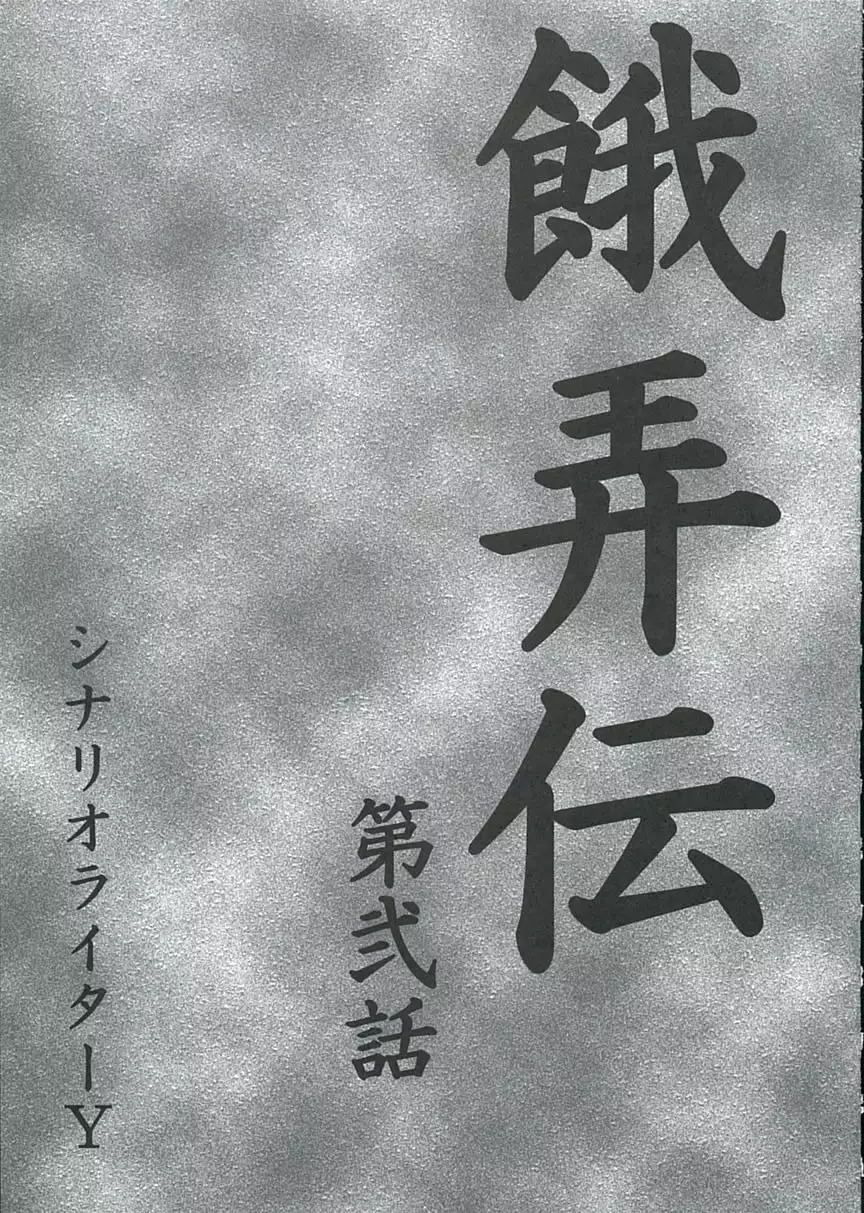 餓弄伝
第弐話
シナリオライターY